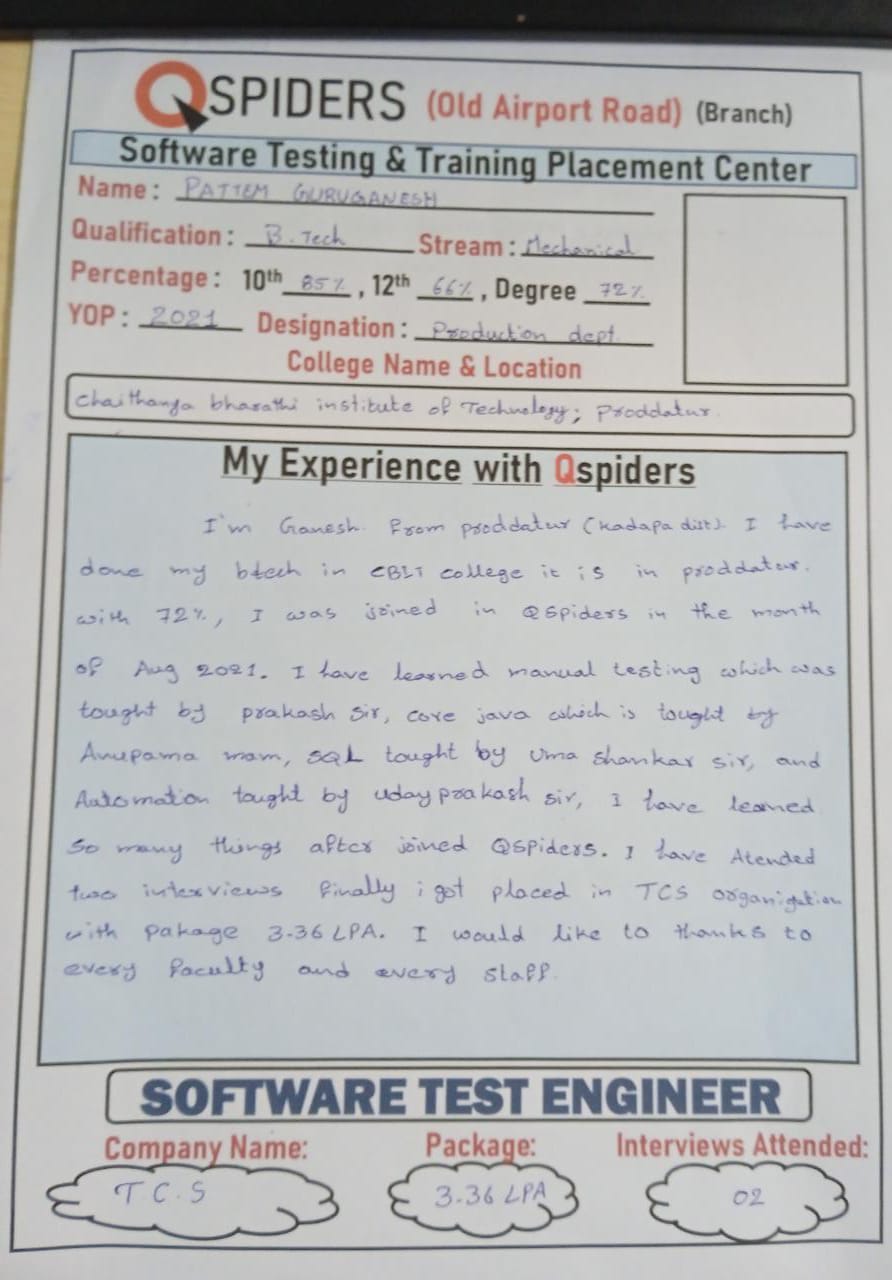 QSPIDERS (Old Airport Road) (Branch)
Software Testing & Training Placement Center
Name : PATTEM GURUGANESH
Qualification : B.Tech Stream : Mechanical
Percentage : 10th 85% , 12th 66% , Degree 72%
YOP : 2021 Designation : Production dept.
College Name & Location
Chaithanya bharathi institute of Technology; Proddatur.
My Experience with Qspiders
I'm Ganesh. From proddatur (kadapa dist). I have
done my btech in CBIT college it is in proddatur.
with 72%, I was joined in QSpiders in the month
of Aug 2021. I have learned manual testing which was
tought by prakash sir, core java which is tought by
Anupama mam, SQL tought by Uma Shankar sir, and
Automation tought by uday prakash sir, I have learned
So many things after joined QSpiders. I have Atended
two interviews finally i got placed in TCS organigation
with pakage 3.36 LPA. I would like to thanks to
every faculty and every staff.
SOFTWARE TEST ENGINEER
Company Name: Package: Interviews Attended:
T C.S 3.36 LPA 02